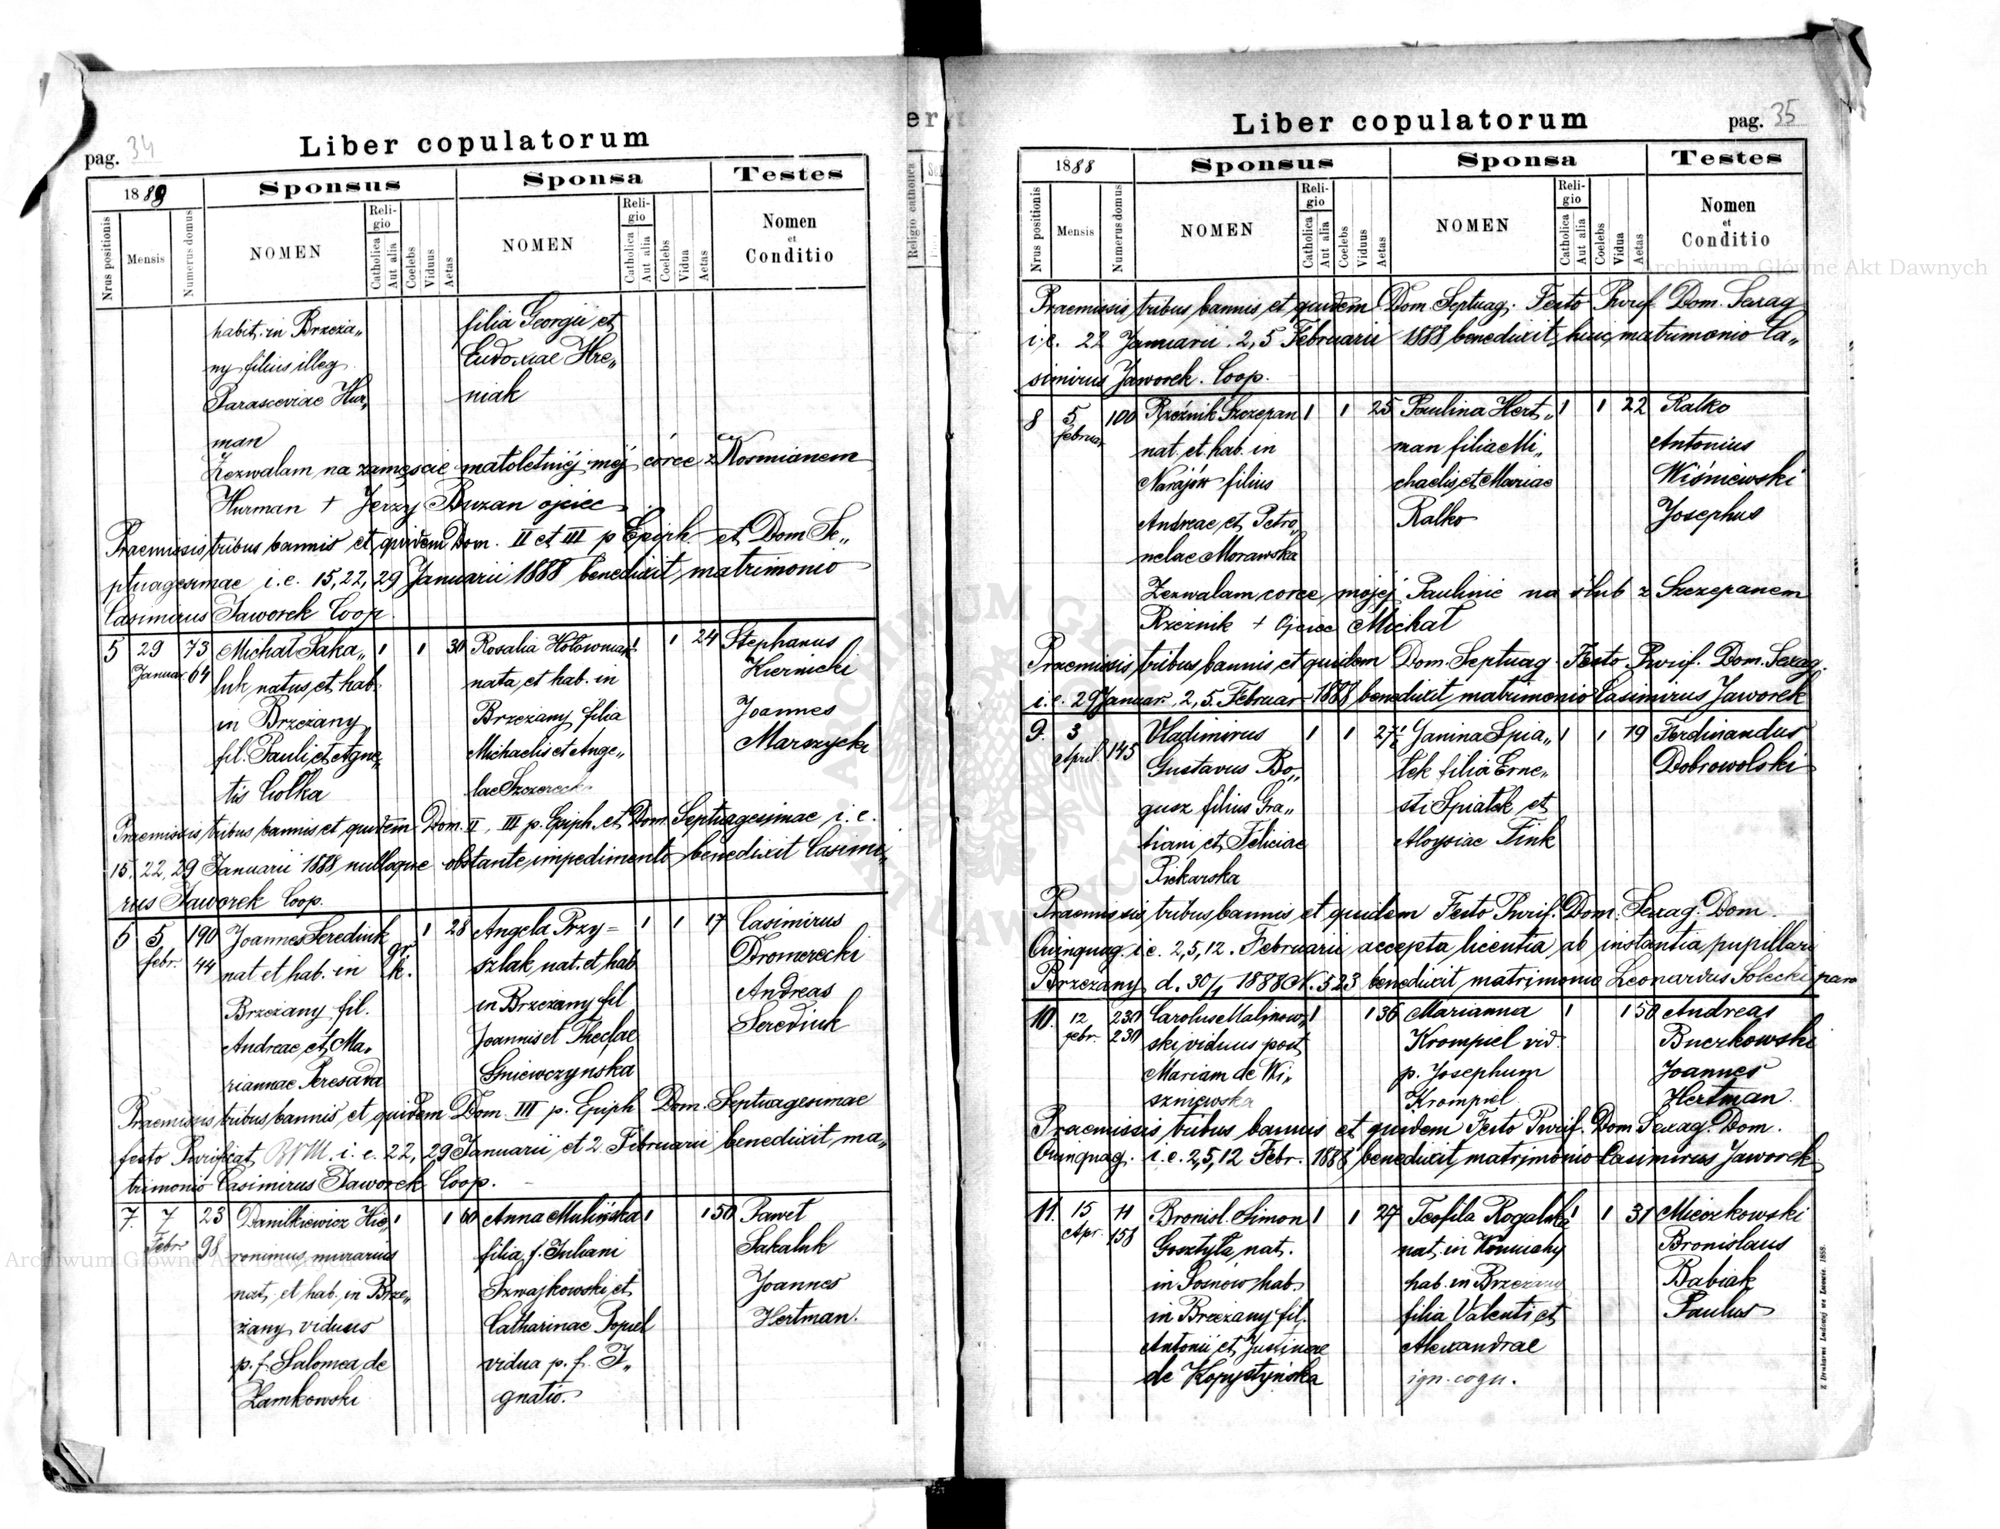 pag. 34
Liber copulatorum
1888
Sponsus
Sponsa
Testes
Nrus positionis
Mensis
Numerus domus
NOMEN
Religio
Catholica
Aut alia
Coelebs
Viduus
Aetas
NOMEN
Religio
Catholica
Aut alia
Coelebs
Vidua
Aetas
Nomen
et
Conditio
habit. in Brzeża„ filia Georgii et
ny filius illeg. Eudoxiae Hre„
Parasceviae Hur„ niak
man
Zezwalam na zamęście małoletniéj méj córce z Kosmianem
Hurman + Jerzy Buzan ojciec
Praemissis tribus bannis et quidem Dom. II et III p Epiph. et Dom Se„
ptuagesimae i.e. 15, 22, 29 Januarii 1888 benedixit matrimonio
Casimirus Jaworek Coop.
5 29 73 Michał Saka„ 1 1 30 Rosalia Hołowniak 1 1 24 Stephanus
Januar. 64 luk natus et hab. nata et hab. in Kiernicki
in Brzeżany Brzeżany filia Joannes
fil. Pauli et Agne„ Michaelis et Ange„ Marszycki
tis Ciolka lae Szczerecka
Praemissis tribus bannis et quidem Dom. II, III p. Epiph. et Dom. Septuagesimae i.e.
15, 22, 29 Januarii 1888 nulloque obstante impedimento benedixit Casimi„
rus Jaworek Coop.
6 5 190 Joannes Serediuk gr. 1 28 Angela Przy= 1 1 17 Casimirus
febr. 44 nat et hab. in k. szlak nat. et hab. Dromerecki
Brzeżany fil. in Brzeżany fil Andreas
Andreae et Ma„ Joannis et Theclae Serediuk
riannae Teresawa Gniewczynska
Praemissis tribus bannis et quidem Dom. III p. Epiph Dom. Septuagesimae
festo Purificat BVM. i.e. 22, 29 Januarii et 2 Februarii benedixit ma„
trimonio Casimirus Jaworek Coop.
7. 7 23 Danilkiewicz Hie„ 1 1 60 Anna Mulińska 1 1 50 Paweł
Febr 98 ronimus murarius filia f. Juliani Sakaluk
nat. et hab. in Brze„ Szwajkowski et Joannes
żany viduus Catharinae Popiel Hertman.
p. f. Salomea de vidua p. f. I„
Zamkowski gnatio.
Liber copulatorum
pag. 35
1888
Sponsus
Sponsa
Testes
Nrus positionis
Mensis
Numerus domus
NOMEN
Religio
Catholica
Aut alia
Coelebs
Viduus
Aetas
NOMEN
Religio
Catholica
Aut alia
Coelebs
Vidua
Aetas
Nomen
et
Conditio
Praemissis tribus bannis et quidem Dom. Septuag. Festo Purif. Dom. Sexag
i.e. 22 Januarii 2, 5 Februarii 1888 benedixit huic matrimonio Ca„
simirus Jaworek. Coop.
8 5 100 Rzeźnik Szczepan 1 1 25 Paulina Hert„ 1 1 22 Ralko
februar. nat. et hab. in man filia Mi„ Antonius
Narajów filius chaelis et Mariae Wiśniewski
Andreae et Petro„ Ralko Josephus
nelae Morawska
Zezwalam corce mojej Paulinie na ślub z Szczepanem
Rzeźnik + Ojciec Michał
Praemissis tribus bannis et quidem Dom. Septuag. Festo Purif. Dom. Sexag.
i.e. 29 Januar. 2, 5. Februar 1888 benedixit matrimonio Casimirus Jaworek
9. 3 145 Vladimirus 1 1 27½ Janina Spia„ 1 1 19 Ferdinandus
April Gustavus Bo„ tek filia Erne„ Dobrowolski
gusz filius Gra„ sti Spiatek et
tiani et Feliciae Aloysiae Fink
Piekarska
Praemissis tribus bannis et quidem Festo Purif. Dom. Sexag. Dom.
Quinquag. i.e. 2, 5, 12. Februarii accepta licentia ab instantia pupillari
Brzezany d. 30/1 1888 N. 523 benedixit matrimonio Leonardus Solecki
10. 12 230 Carolus Malinow„ 1 1 36 Marianna 1 1 50 Andreas
febr. 230 ski viduus post Krompiel vid. Buczkowski
Mariam de Wi„ p. Josephum Joannes
szniewska Krompiel Hertman.
Praemissis tribus bannis et quidem Festo Purif. Dom Sexag. Dom.
Quinquag. i.e. 2, 5, 12 Febr. 1888 benedixit matrimonio Casimirus Jaworek
11. 15 11 Bronisl. Simon 1 1 27 Teofila Rogalska 1 1 31 Mieczkowski
Apr. 158 Gosztyła nat. nat. in Koniuchy Bronislaus
in Sosnów hab. hab. in Brzezany Babiak
in Brzezany fil. filia Valenti et Paulus
Antonii et Justinae Alexandrae
de Kopystyńska ign. cogn.
Z Drukarni Ludowej we Lwowie. 1888.
Archiwum Główne Akt Dawnych
Archiwum Główne Akt Dawnych
ARCHIWUM GŁÓWNE AKT DAWNYCH